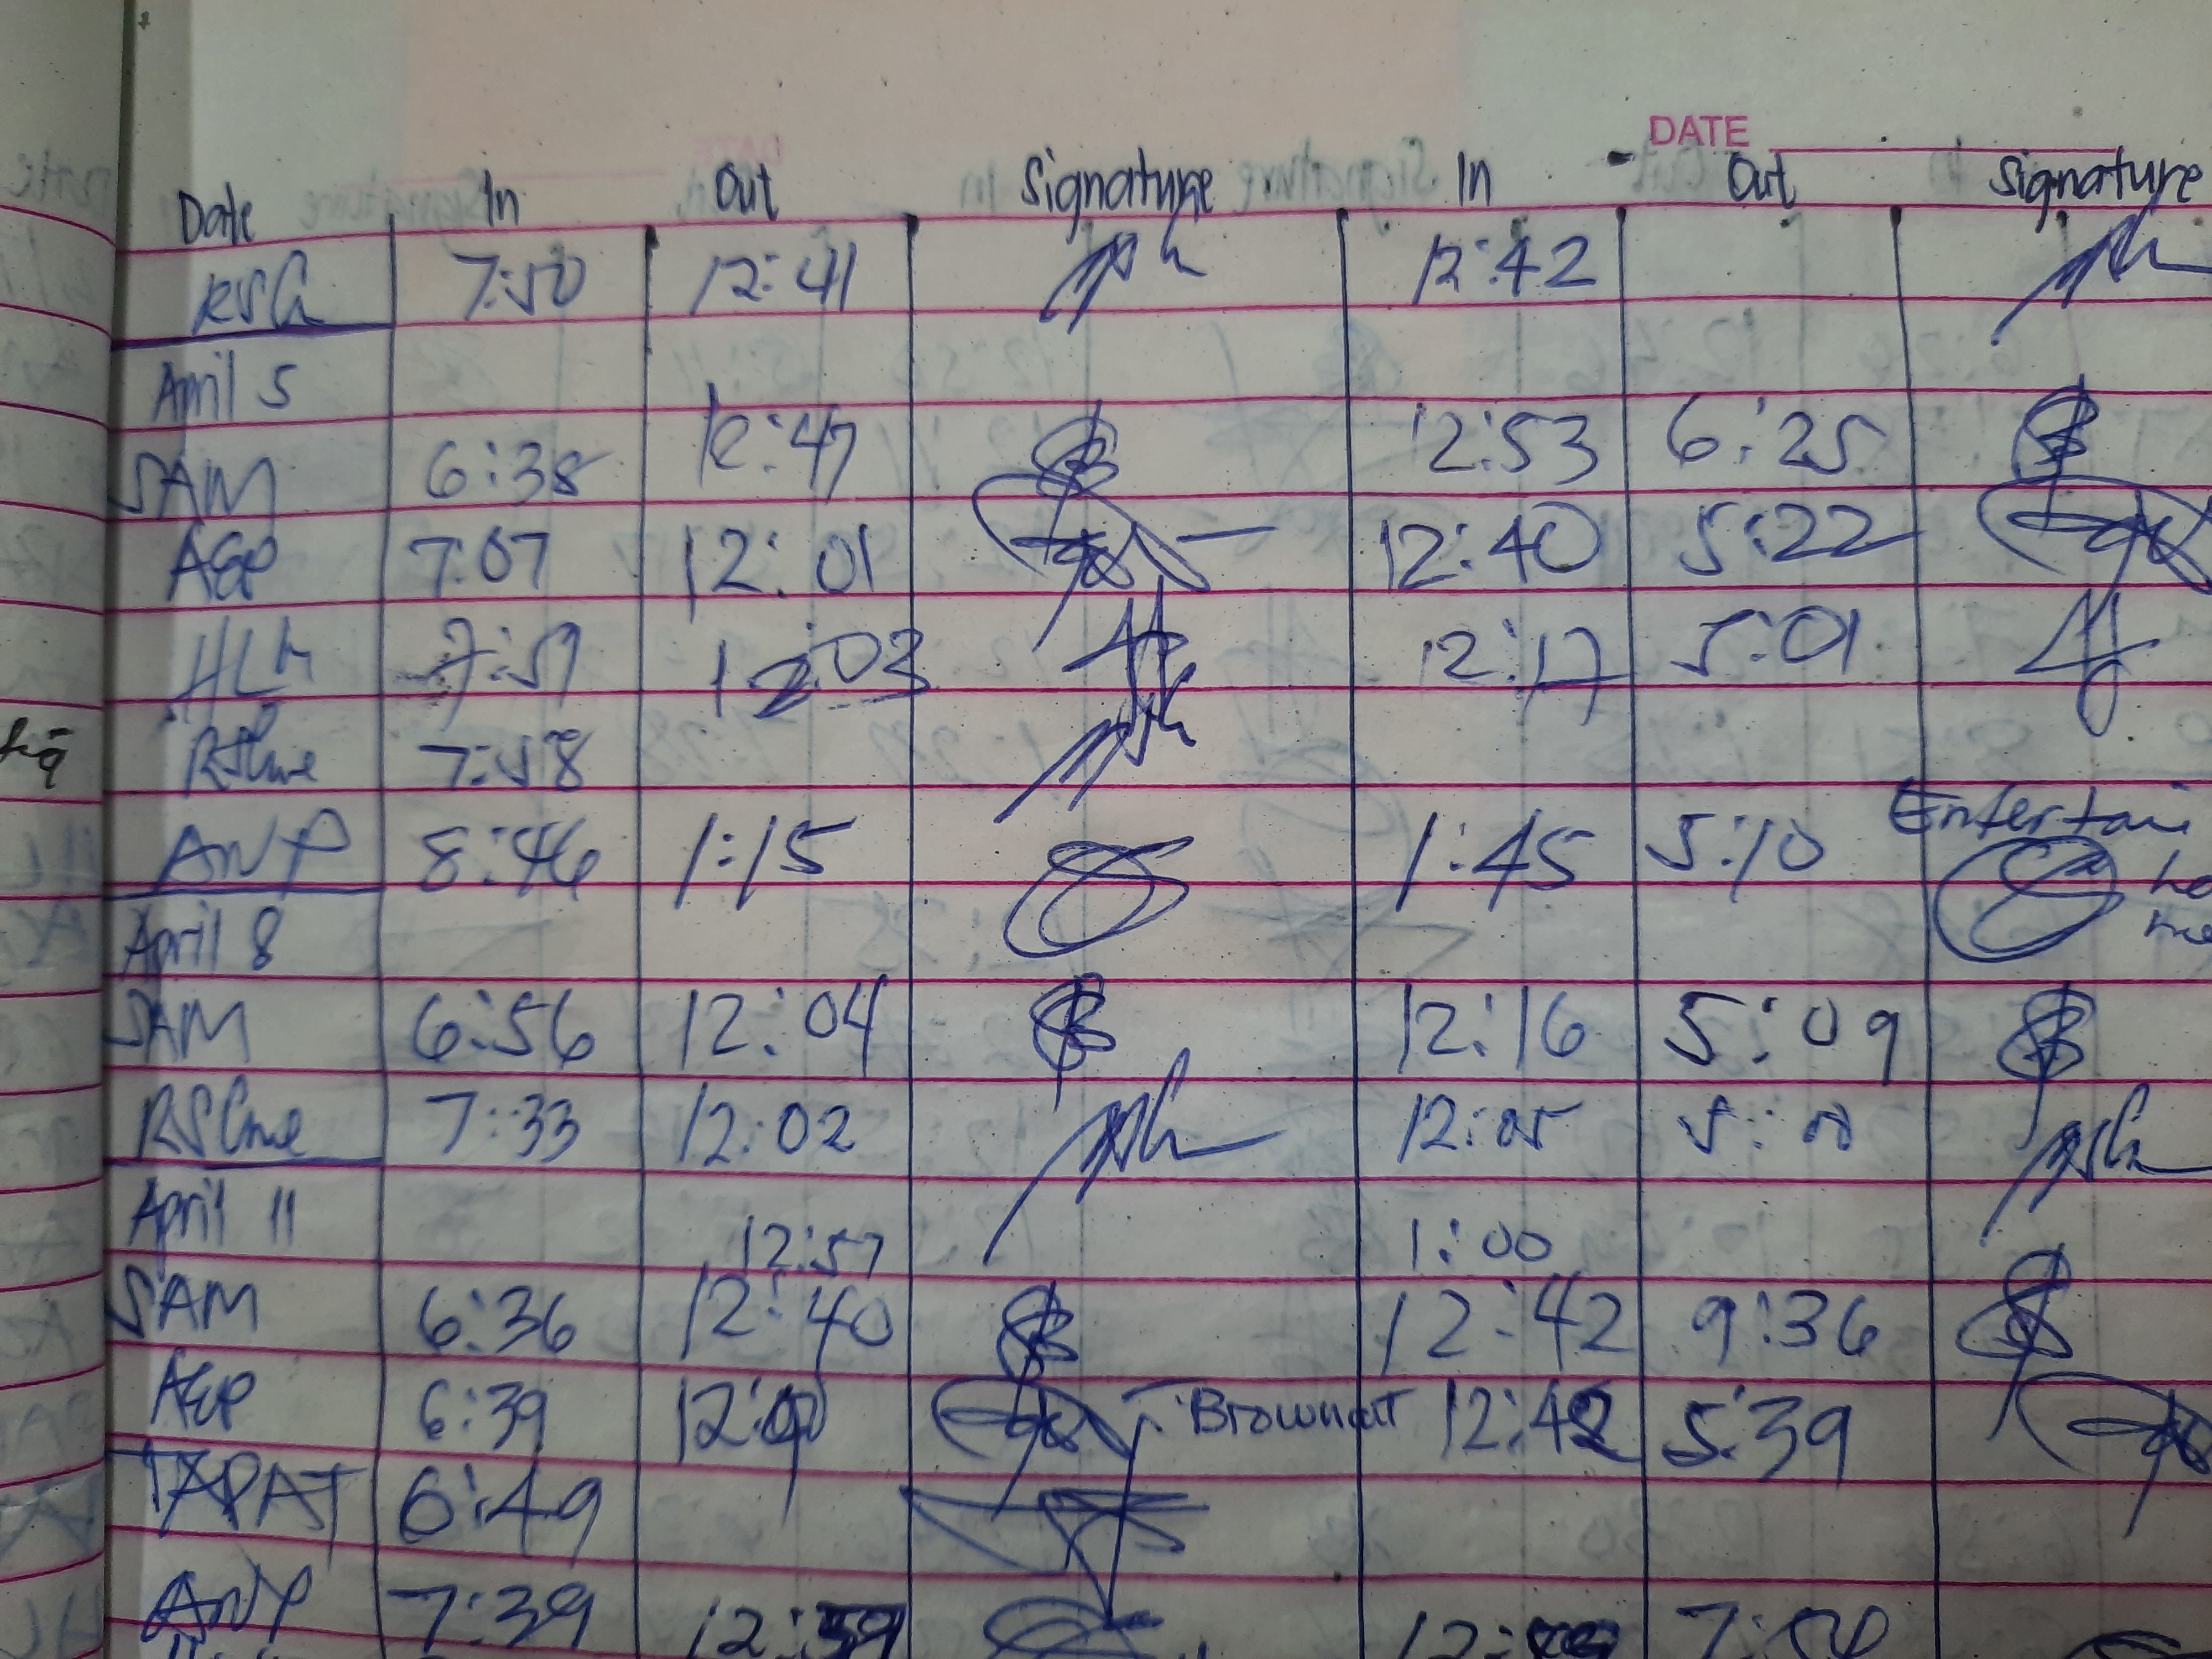 DATE
Date In Out Signature In Out Signature
7:50 12:41 12:42
April 5
SAM 6:38 12:47 12:53 6:25
AGP 7:07 12:01 12:40 5:22
HLM 7:59 12:03 12:17 5:01
7:58
ANP 8:46 1:15 1:45 5:10 Entertai
April 8
SAM 6:56 12:04 12:16 5:09
7:33 12:02 12:05 5:
April 11
12:57 1:00
SAM 6:36 12:40 12:42 9:36
AGP 6:39 Brownout 12:42 5:39
TAPAT 6:49
ANP 7:39 12:59